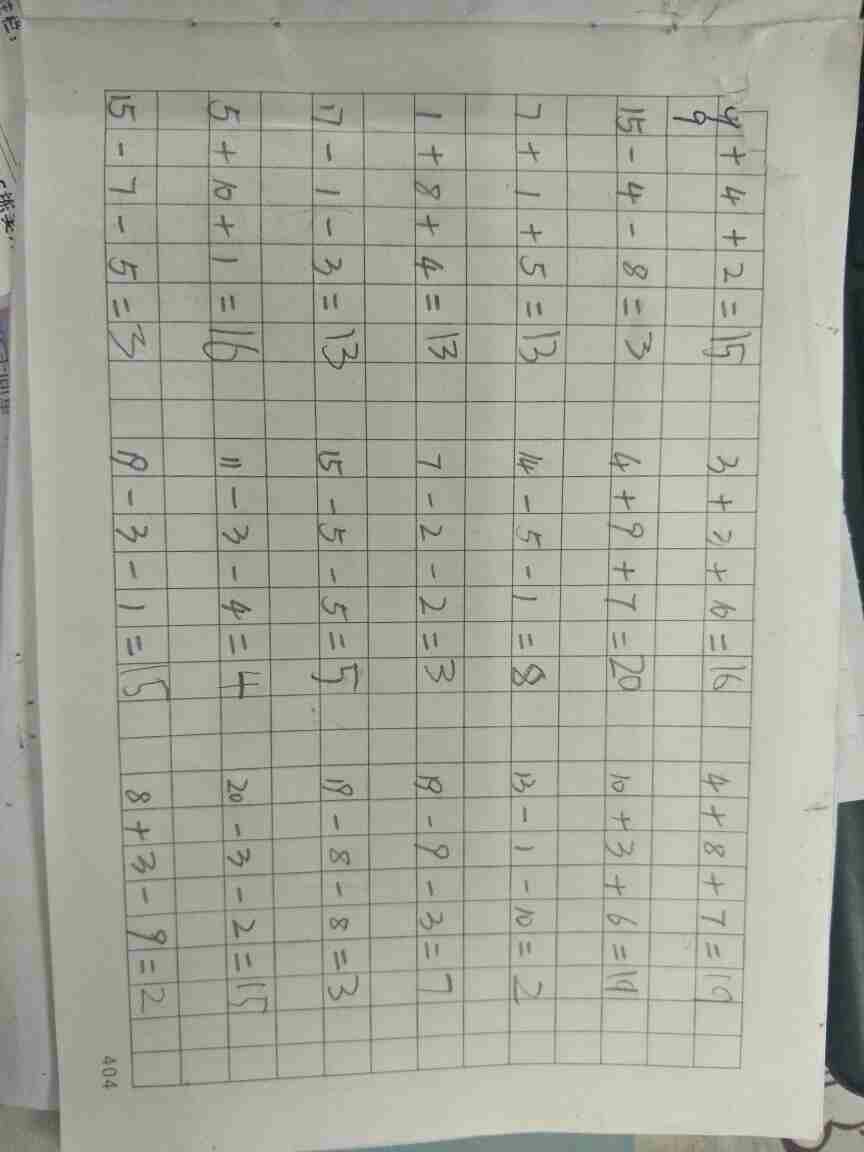 9 + 4 + 2 = 15 3 + 3 + 10 = 16 4 + 8 + 7 = 19
15 - 4 - 8 = 3 4 + 9 + 7 = 20 10 + 3 + 6 = 19
7 + 1 + 5 = 13 14 - 5 - 1 = 8 13 - 1 - 10 = 2
1 + 8 + 4 = 13 7 - 2 - 2 = 3 19 - 9 - 3 = 7
17 - 1 - 3 = 13 15 - 5 - 5 = 5 19 - 8 - 8 = 3
5 + 10 + 1 = 16 11 - 3 - 4 = 4 20 - 3 - 2 = 15
15 - 7 - 5 = 3 19 - 3 - 1 = 15 8 + 3 - 9 = 2
404